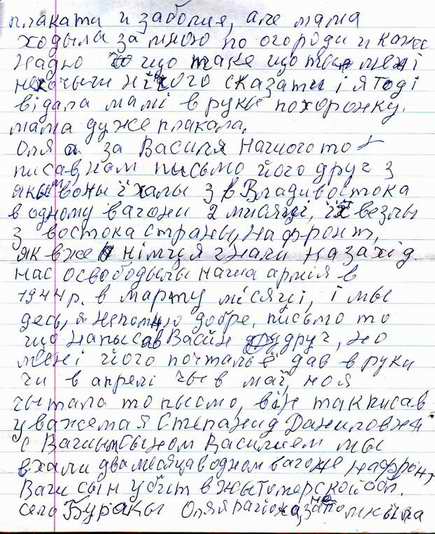 плакати и заболия, але мама
ходыла за мною по огороди и каже
Надю що таке що ты мені
нехочыш нічого сказати і я тоді
відала мамі в рукы похоронку.
мама дуже плакала,
Оля а за Василя Нашого то
писав нам письмо його друг з
якым воны їхалы з Владивостока
в одному вагони 2 мисяци, їх везлы
з востока страны, на фронт,
як вже німця гнали на захід
нас освободылы наша армія в
1944 р. в марту місяці, і мы
десь, я непомню добре, письмо то
що написав Васін друг, но
мені його почтальё дав в руки
чи в апрелі чы в маї, но я
чытала то пысмо, він так писав
уважемая Степанид Даниловна
с Вашим сыном Василием мы
ехали два месяца водном вагоне на фронт
Ваш сын убит в Жытомерской обл.
село Бураки Оля район я не запомныла